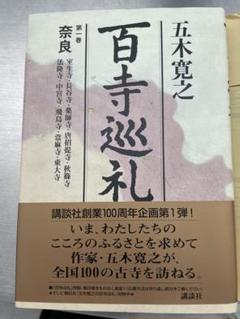 五木寛之
百寺巡礼
第一巻
奈良
室生寺・長谷寺・薬師寺・唐招提寺・秋篠寺
法隆寺・中宮寺・飛鳥寺・當麻寺・東大寺
講談社創業100周年企画第1弾!
いま、わたしたちの
こころのふるさとを求めて
作家・五木寛之が、
全国100の古寺を訪ねる。
講談社